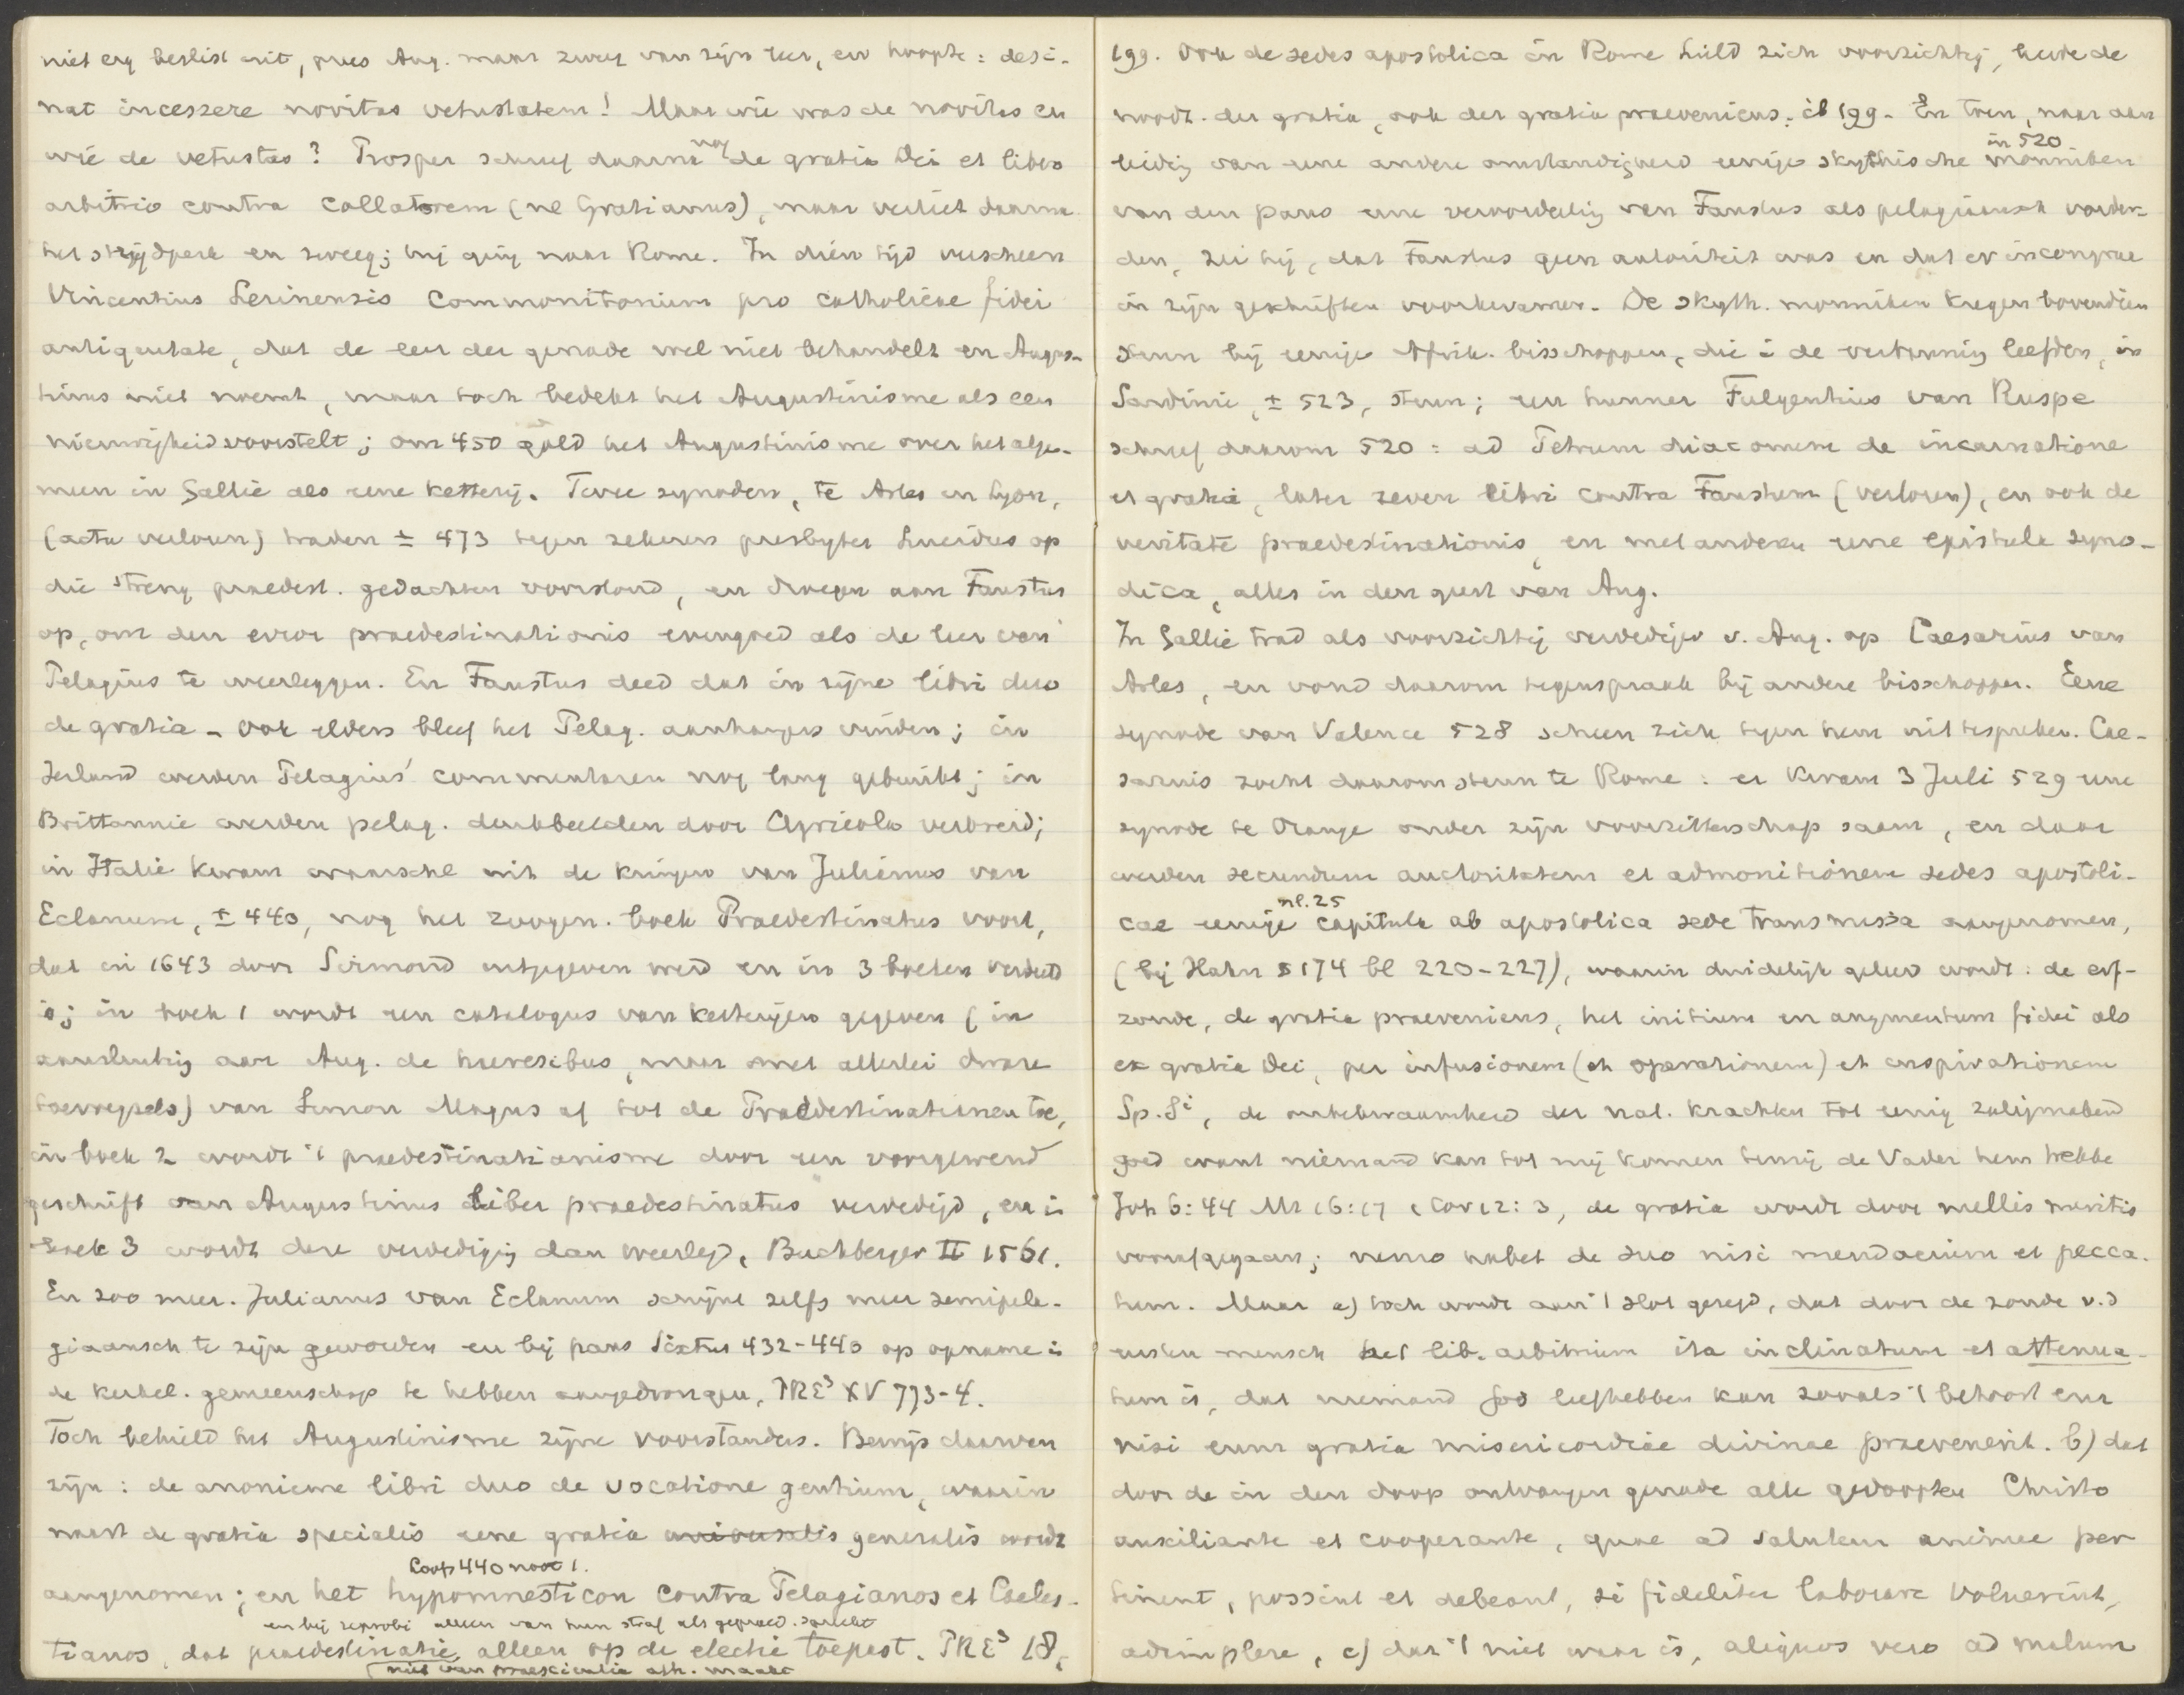 niet erg beslist uit, prees Aug. maar zweeg van zijn leer, en hoopte: desi-
nat incessere novitas vetustatem! Maar wie was de novitas en
wie de vetustas? Prosper schreef daarna nog de gratia Dei et libero
arbitrio contra Collatorem (nl , maar verliet daarna
het strijdperk en zweeg; hij ging naar Rome. In dien tijd verscheen
Vincentius Lerinensis Commonitorium pro catholicae fidei
antiquitate, dat de leer der genade wel niet behandelt en Augus-
tinus niet noemt, maar toch bedekt het Augustinisme als een
nieuwigheid voorstelt; om 450 gold het Augustinisme over het alge-
meen in Gallië als eene ketterij. Twee synoden, te Arles en Lyon,
(acta verloren) traden ± 473 tegen zekeren presbyter Lucidus op
die streng praedest. gedachten voorstond, en droegen aan Faustus
op, om den error praedestinationis evengoed als de leer van
Pelagius te weerleggen. En Faustus deed dat in zijne libri duo
de gratia - Ook elders bleef het Pelag. aanhangers vinden; in
Ierland werden Pelagius' commentaren nog lang gebruikt; in
Brittannie werden pelag. denkbeelden door Agricola verbreid;
in Italië kwam waarschl uit de kringen van Julianus van
Eclanum, ± 440, nog het zoogen. boek Praedestinatus voort,
dat in 1643 door Sirmond uitgegeven werd en in 3 boeken verdeeld
is; in boek 1 wordt een catalogus van ketterijen gegeven (in
aansluiting aan Aug. de haeresibus, maar met allerlei dwaze
toevoegsels) van Simon Magus af tot de Praedestinatianen toe,
in boek 2 wordt 't praedestinatianisme door een voorgewend
geschrift van Augustinus Liber praedestinatus verdedigd, en in
boek 3 wordt deze verdediging dan weerlegd, Buchberger II 1561.
En zoo meer. Julianus van Eclanum schijnt zelfs meer semipela-
giaansch te zijn geworden en bij paus Sixtus 432-440 op opname in
de kerkel. gemeenschap te hebben aangedrongen, PRE³ XV 773-4.
Toch behield het Augustinisme zijne voorstanders. Bewijs daarvan
zijn: de anonieme libri duo de vocatione gentium, waarin
naast de gratia specialis eene gratia universalis generalis wordt
Loofs 440 noot 1.
aangenomen; en het hypomnesticon contra Pelagianos et Coeles-
en bij reprobi alleen van hun straf als gepraed. spreekt
tianos, dat praedestinatie, alleen op de electie toepast. PRE³ 18,
niet van praescientia afh. maakt
199. Ook de sedes apostolica in Rome hield zich voorzichtig, leerde de
noodz. der gratia, ook der gratia praeveniens. ib 199. En toen, naar aan
in 520
leidig van eene andere omstandigheid eenige skythische monniken
van den paus eene veroordeelig van Faustus als pelagiaansch vorder-
den, zei hij, dat Faustus geen autoriteit was en dat er incongrua
in zijn geschriften voorkwamen. De skyth. monniken kregen bovendien
steun bij eenige Afrik. bisschoppen, die i de verbanning leefden, in
Sardinie, ± 523, steun; een hunner Fulgentius van Ruspe
schreef daarom 520: ad Petrum diaconum de incarnatione
et gratia, later zeven libri contra Faustum (verloren), en ook de
veritate praedestinationis, en met anderen eene epistula syno-
dica, alles in den geest van Aug.
In Gallië trad als voorzichtig verdediger v. Aug. op Caesarius van
Arles, en vond daarom tegenspraak bij andere bisschoppen. Eene
synode van Valence 528 scheen zich tegen hem uit te spreken. Cae-
sarius zocht daarom steun te Rome: er kwam 3 Juli 529 eene
synode te Orange onder zijn voorzitterschap saam, en daar
werden secundum auctoritatem et admonitionem sedes apostoli-
nl. 25
cae eenige capitula ab apostolica sede transmissa aangenomen,
(bij Hahn § 174 bl 220-227), waarin duidelijk geleerd wordt: de erf-
zonde, de gratia praeveniens, het initium en augmentum fidei als
ex gratia Dei, per infusionem (et operationem) et inspirationem
Sp. Si, de onbekwaamheid der nat. krachten tot eenig zaligmakend
goed want niemand kan tot mij komen tenzij de Vader hem trekke
Joh 6:44 Mt 16:17 1 Cor 12:3, de gratia wordt door nullis meritis
voorafgegaan; nemo habet de suo nisi mendacium et pecca-
tum. Maar a) toch wordt aan 't slot gezegd, dat door de zonde v.d
eersten mensch het lib. arbitrium ita inclinatum et attenua-
tum is, dat niemand God liefhebben kan zooals 't behoort enz
nisi eum gratia misericordiae divinae praevenerit. b) dat
door de in den doop ontvangen genade alle gedoopten Christo
auxiliante et cooperante, quae ad salutem animae per-
tinent, possint et debeant, si fideliter laborare voluerint,
adimplere, c) dat 't niet waar is, aliquos vero ad malum